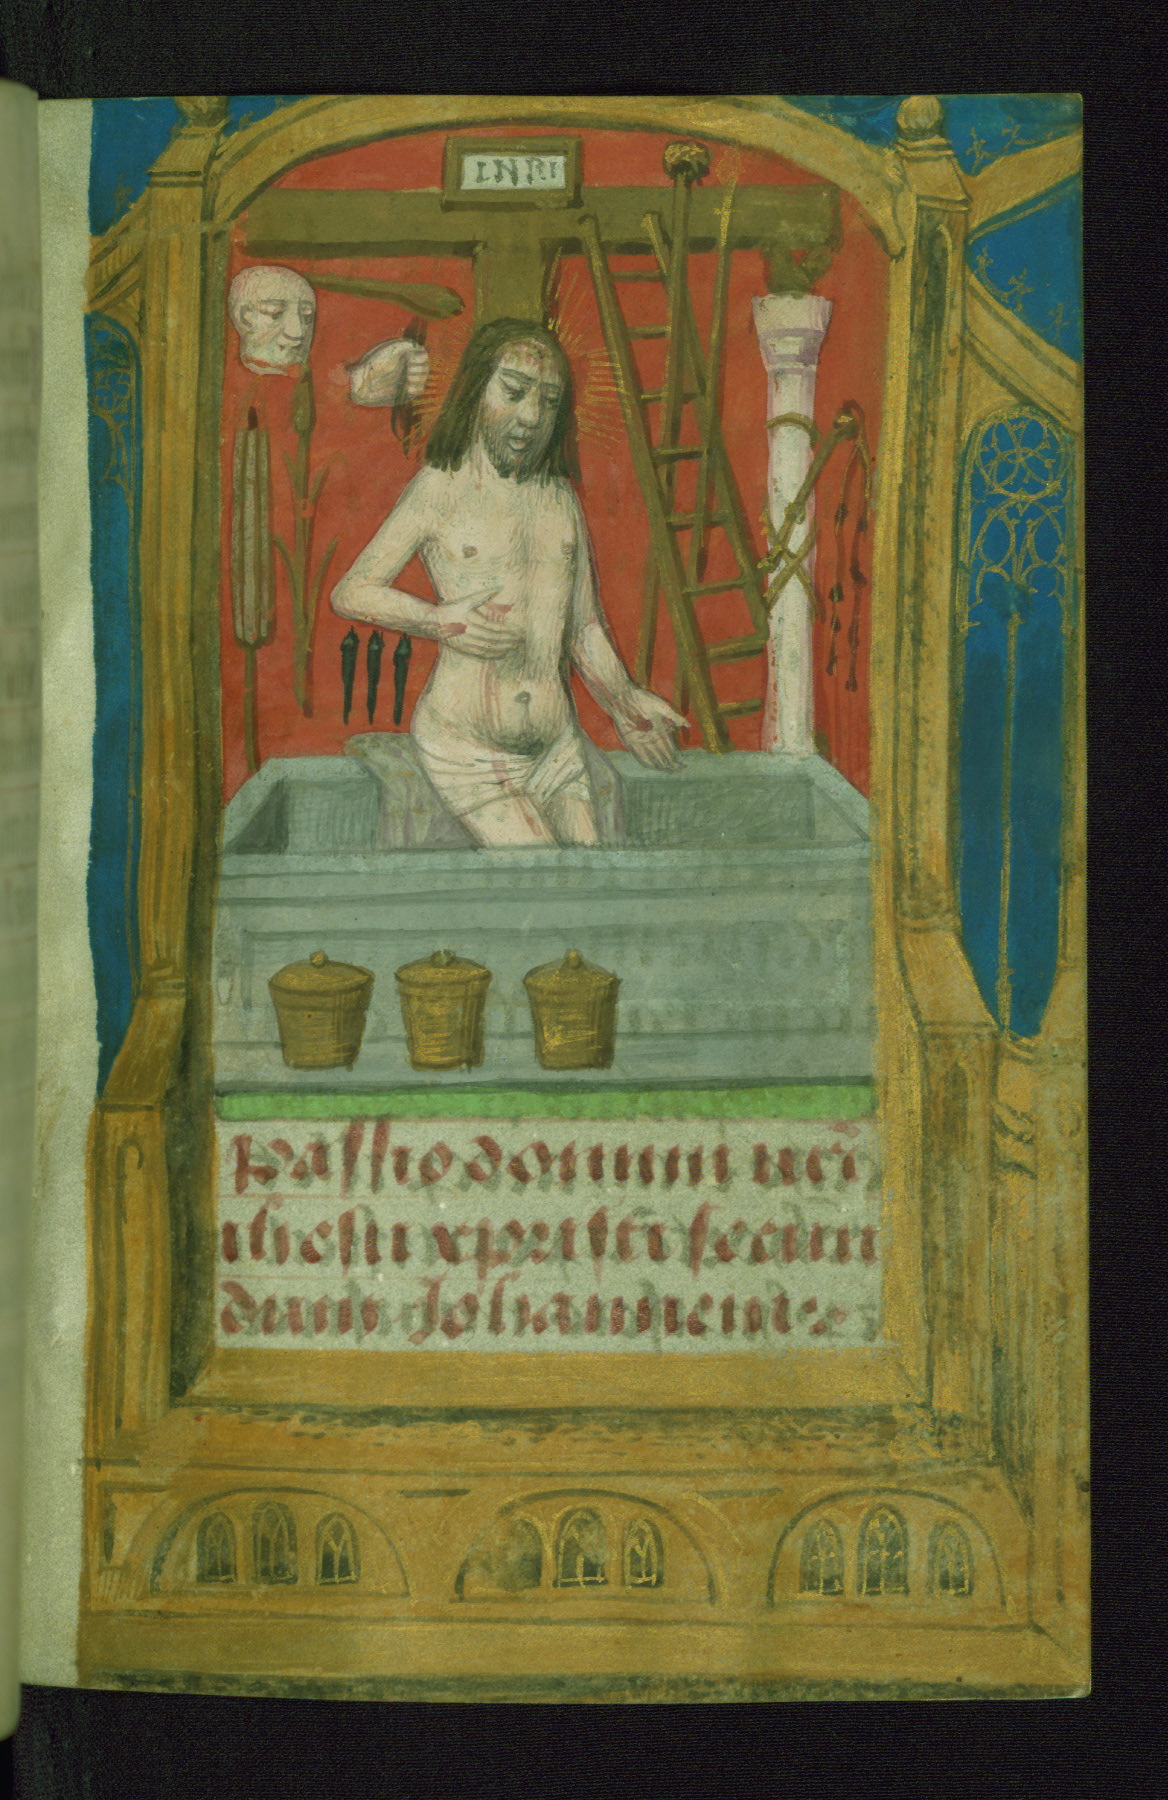 INRI
Passio domini nr̄i
ihesu xpristi secun
dum Johannem